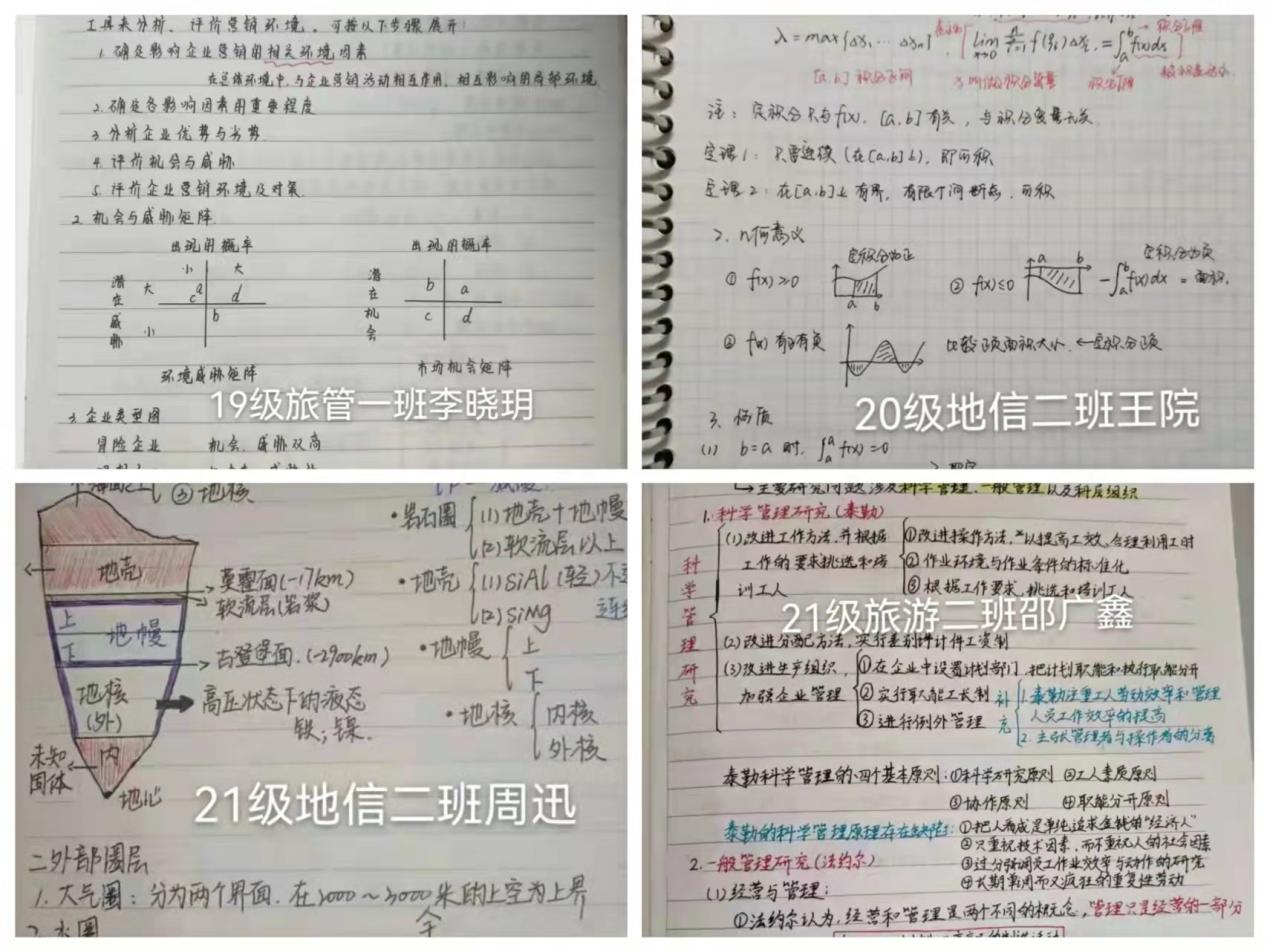 工具来分析、评价营销环境。可按以下步骤展开:
1. 确定影响企业营销的相关环境因素
在总体环境中,与企业营销活动相互作用、相互影响的局部环境
2. 确定各影响因素的重要程度
3. 分析企业优势与劣势
4. 评价机会与威胁
5. 评价企业营销环境及对策
2. 机会与威胁矩阵
出现的概率
小 大
潜在威胁
大
小
a
c
d
b
环境威胁矩阵
出现的概率
潜在机会
b a
c d
市场机会矩阵
19级旅管一班李晓玥
3. 企业类型图
冒险企业 机会、威胁双高
λ=max{Δx₁…Δxₙ}
f(ξᵢ)Δxᵢ=∫ₐᵇf(x)dx
[a,b] 积分区间
积分变量
注:定积分只与f(x),[a,b]有关,与积分变量无关
定理1:只要连续(在[a,b]上),即可积
定理2:在[a,b]上有界,有限个间断点,可积
2. 几何意义
① f(x)≥0
定积分为正
a b
② f(x)≤0
a b
定积分为负
-∫ₐᵇf(x)dx = 面积.
③ f(x)有正有负
比较正负面积大小.←定积分正负
20级地信二班王院
3. 性质
(1) b=a 时, ∫ₐᵃ f(x)=0
③地核
地壳
莫霍面(-17km)
软流层(岩浆)
上
地幔
下
古登堡面.(-2900km)
地核
(外)
高压状态下的液态
铁;镍.
未知
固体
内
地心
•岩石圈
(1)地壳+地幔
(2)软流层以上
•地壳
(1)SiAl(轻)不连
(2)SiMg 连续
•地幔
上
下
•地核
内核
外核
21级地信二班周迅
二外部圈层
1. 大气圈:分为两个界面.在2000~3000米的上空为上界
2. 水圈
主要研究问题,涉及科学管理、一般管理以及科层组织
1.科学管理研究(泰勒)
科学管理研究
(1)改进工作方法,并根据
工作的要求挑选和培
训工人
①改进操作方法,以提高工效、合理利用工时
②作业环境与作业条件的标准化
③根据工作要求,挑选和培训工人
21级旅游二班邵广鑫
(2)改进分配方法,实行差别计件工资制
(3)改进生产组织,
加强企业管理
①在企业中设置计划部门,把计划职能和执行职能分开
②实行职能工长制
③进行例外管理
补充
1.泰勒注重工人劳动效率和管理
人员工作效率的提高
2.主张管理者与操作者的分离
泰勒科学管理的四个基本原则:①科学研究原则 ②工人素质原则
③协作原则 ④职能分开原则
泰勒的科学管理原理存在缺陷:①把人看成是单纯追求金钱的“经济人”
②只重视技术因素,而不重视人的社会因素
③过分强调工作业效率与动作的研究
④长期单调而又疯狂的重复性劳动
2.一般管理研究(法约尔)
(1)经营与管理:
①法约尔认为,经营和管理是两个不同的概念,管理只是经营的一部分